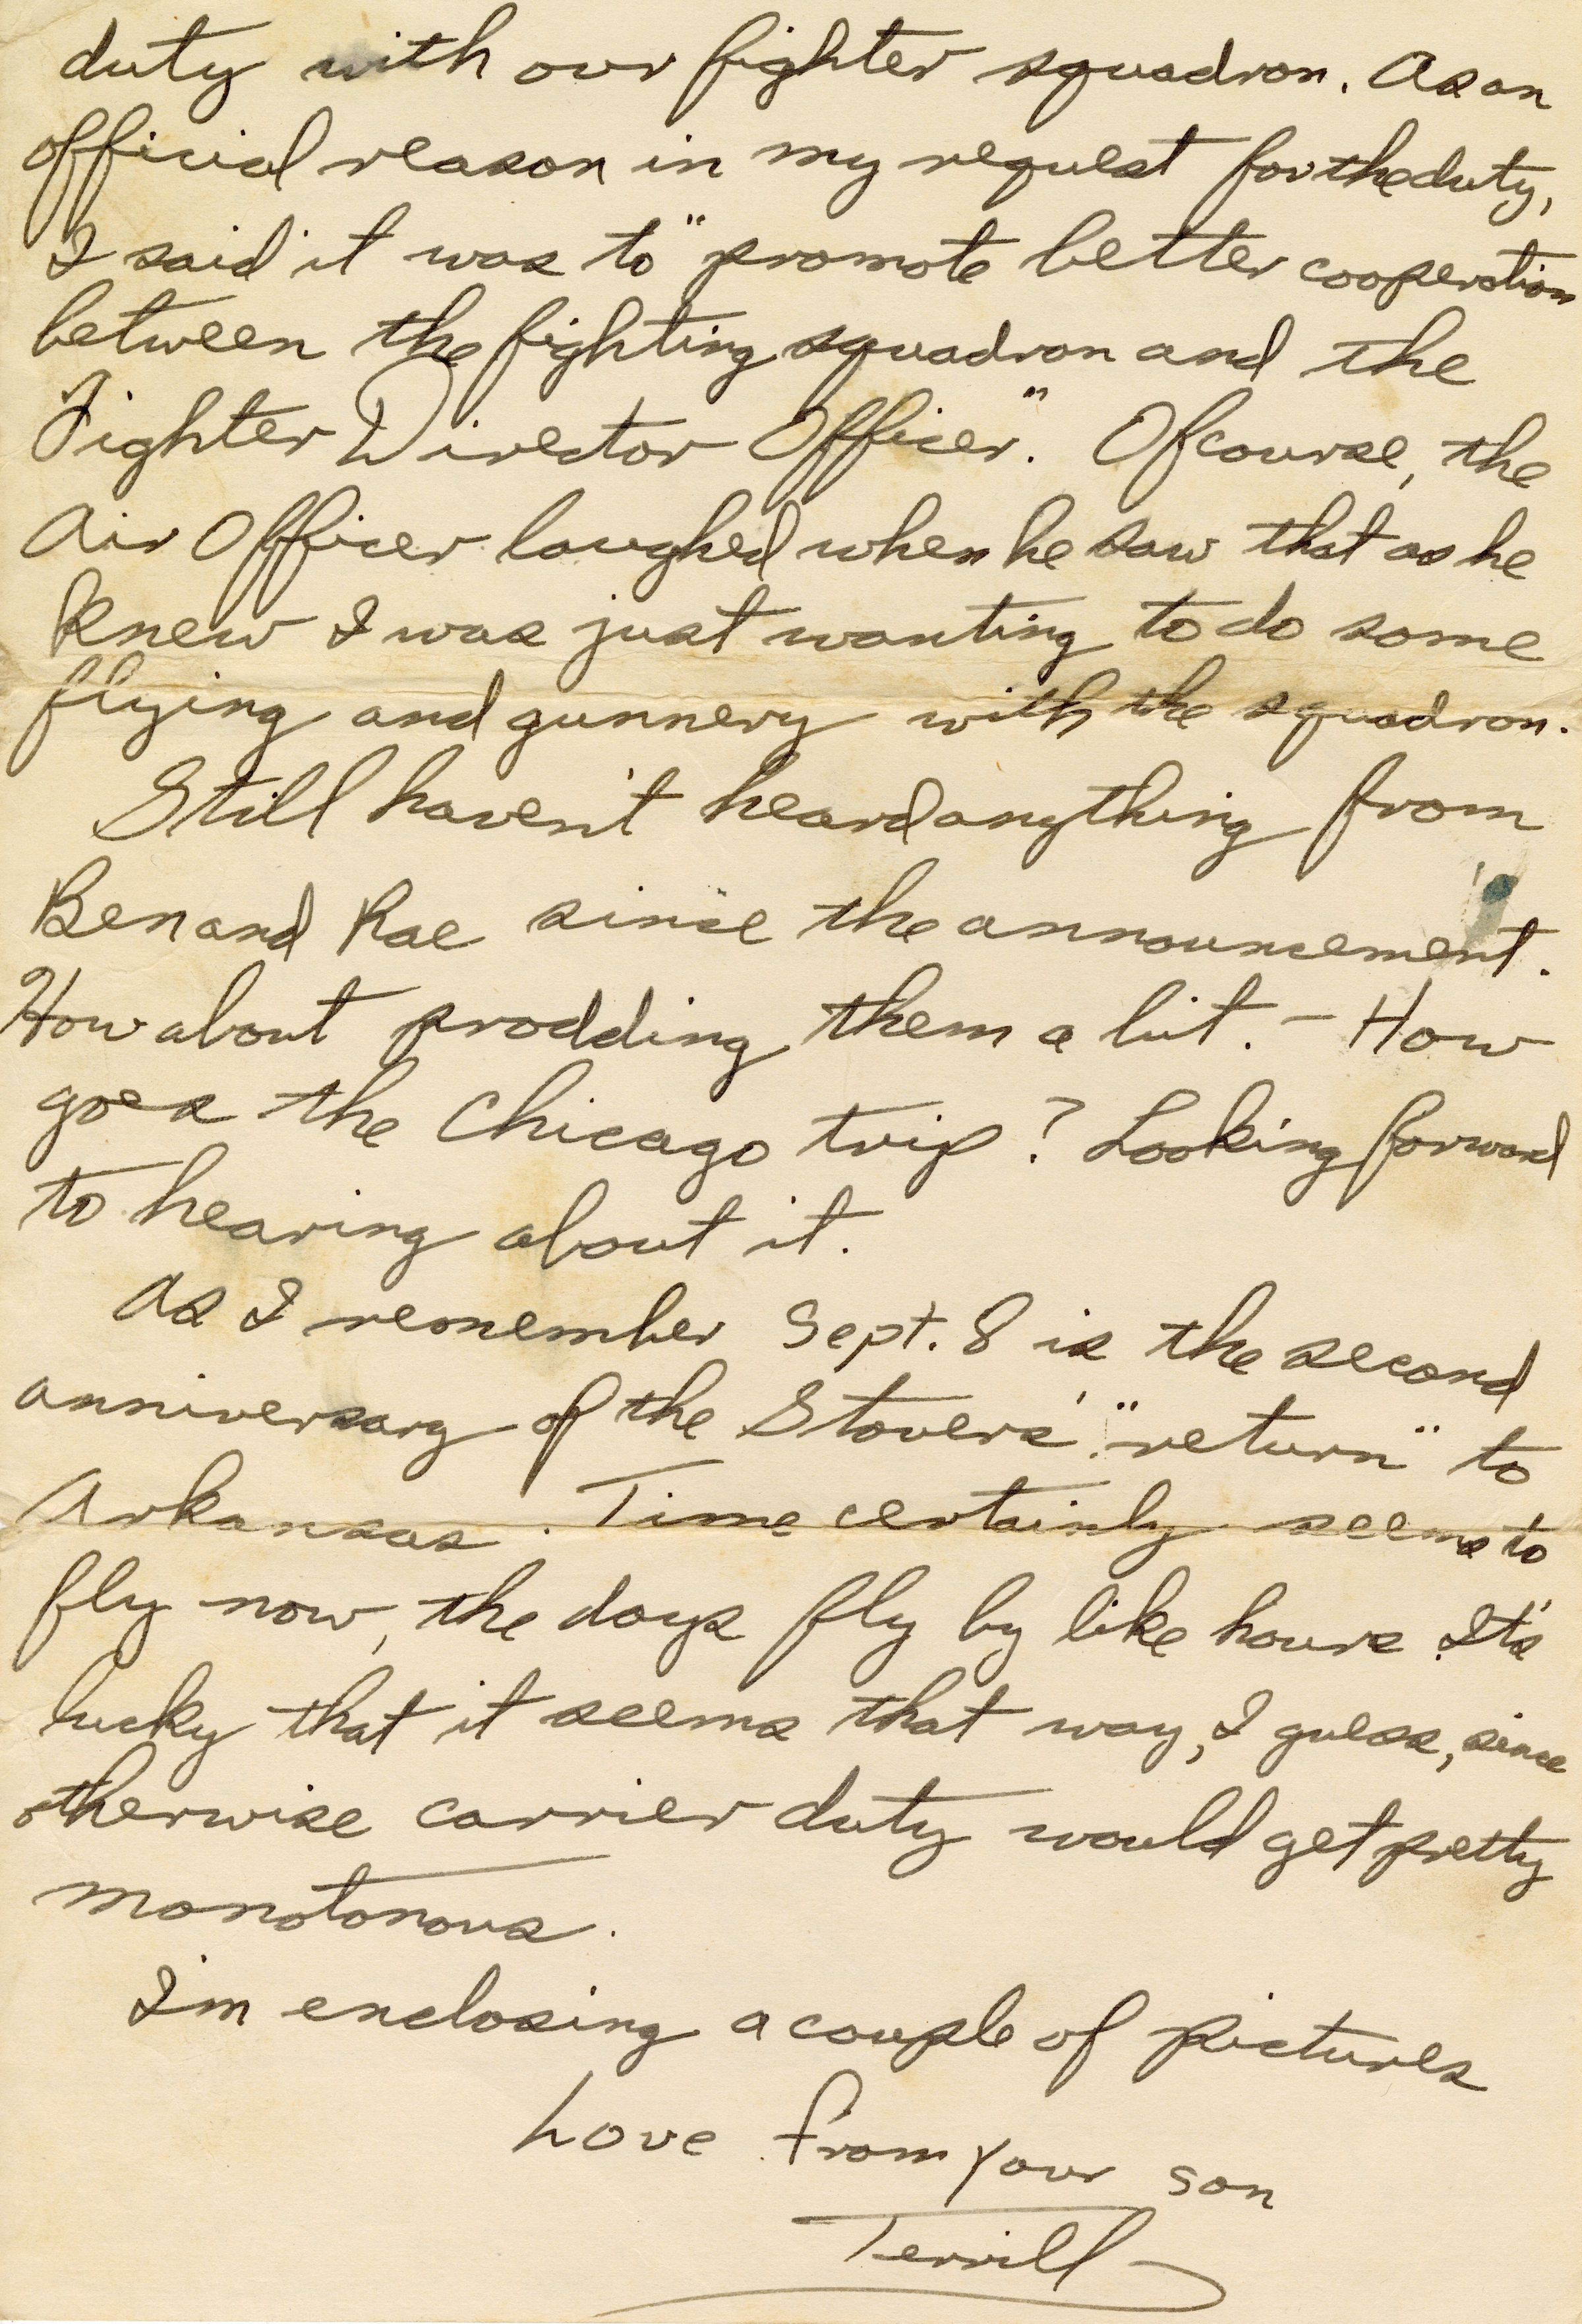 duty with our fighter squadron. As an
official reason in my request for the duty,
I said it was to "promote better cooperation
between the fighting squadron and the
Fighter Director Officer". Of course, the
Air Officer laughed when he saw that as he
knew I was just wanting to do some
flying and gunnery with the squadron.
Still haven't heard anything from
Ben and Rae since the announcement.
How about prodding them a bit. - How
goes the Chicago trip? Looking forward
to hearing about it.
As I remember Sept. 8 is the second
anniversary of the Stovers' "return" to
Arkansas. Time certainly seems to
fly now, the days fly by like hours. It's
lucky that it seems that way, I guess, since
otherwise carrier duty would get pretty
monotonous.
I'm enclosing a couple of pictures
Love from your son
Terrill